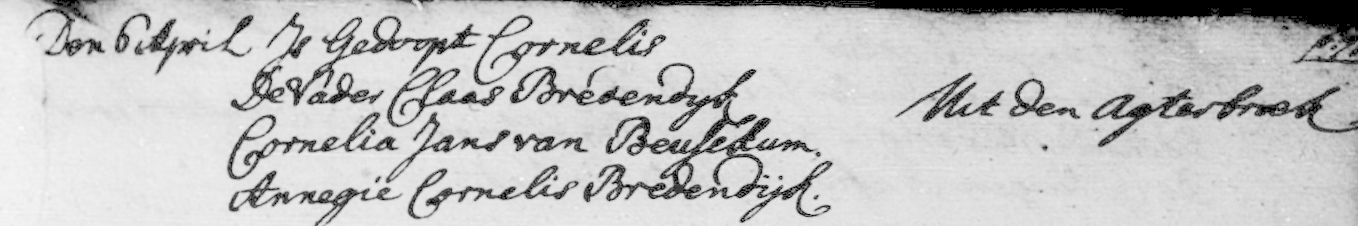 Den 6 April Is Gedoopt Cornelis
De Vader Claas Bredendyk
Uit den Agterbroek
Cornelia Jans van Beusekum.
Annegie Cornelis Bredendijk.